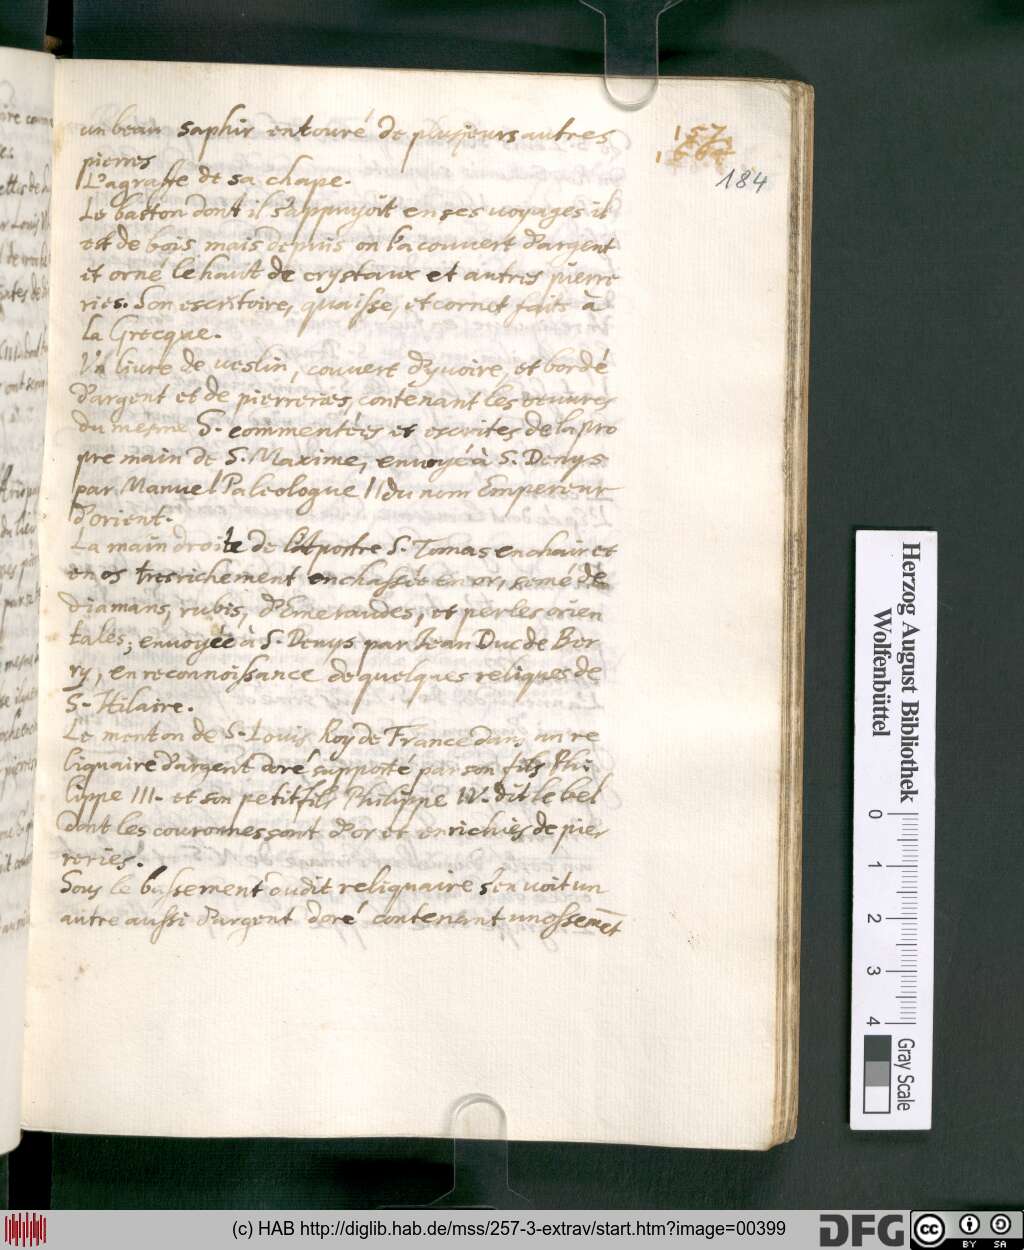 un beau saphir entouré de plusieurs autres
pierres
L'agraffe de sa chape.
Le baston dont il s'appuyoit en ses voyages il
est de bois mais depuis on l'a couvert d'argent
et orné le haut de crystaux et autres pierre
ries. Son escritoire, quaisse, et cornet faits à
la Grecque.
Un livre de veslin, couvert d'yvoire, et bordé
d'argent et de pierreries, contenant les oeuvres
du mesme S. commentées et escrites de la pro
pre main de S. Maxime, envoyé à S. Denys
par Manuel Paleologue II du nom Empereur
d'orient.
La main droite de l'Apostre S. Tomas en chair et
en os tres richement enchassée en or, semé de
diamans, rubis, d'Emeraudes, et perles orien
tales; envoyée à S. Denys par Jean Duc de Ber
ry, en reconnoissance de quelques reliques de
S. Hilaire.
Le menton de S. Louis Roy de France dans un re
liquaire d'argent doré supporté par son fils Phi
lippe III. et son petit fils Philippe IV. dit le bel
dont les couronnes sont d'or et enrichies de pier
reries.
Sous le bassement dudit reliquaire s'en voit un
autre aussi d'argent doré contenant un ossemēt
157
184
Herzog August Bibliothek
Wolfenbüttel
0 1 2 3 4
Gray Scale
(c) HAB http://diglib.hab.de/mss/257-3-extrav/start.htm?image=00399
DFG
cc
BY SA